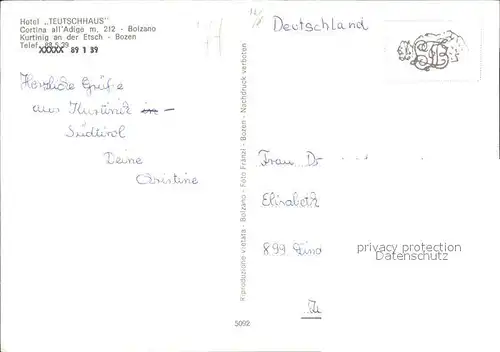 Hotel „TEUTSCHHAUS"
Cortina all'Adige m. 212 - Bolzano
Kurtinig an der Etsch - Bozen
Telef. 88 5 39
XXXXX 89 1 39
Herzliche Grüße
aus Kurtinig in -
Südtirol
Deine
Christine
Riproduzione vietata - Bolzano - Foto Fränzl - Bozen - Nachdruck verboten
5092
Deutschland
Frau Dr
Elisabeth
899 Lind
privacy protection
Datenschutz